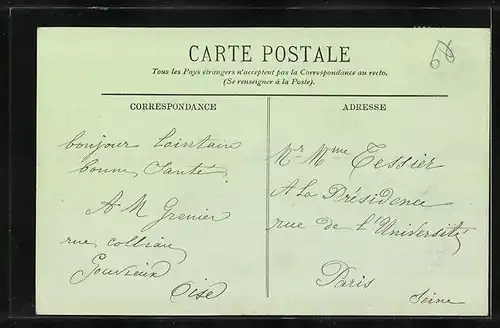 CARTE POSTALE
Tous les Pays étrangers n'acceptent pas la Correspondance au recto.
(Se renseigner à la Poste).
CORRESPONDANCE
bonjour Lointain
bonne Santé
A M Grenier
rue collian
Gouvieux
Oise
ADRESSE
Mr Mme Tessier
A La Présidence
rue de l'Université
Paris
Seine